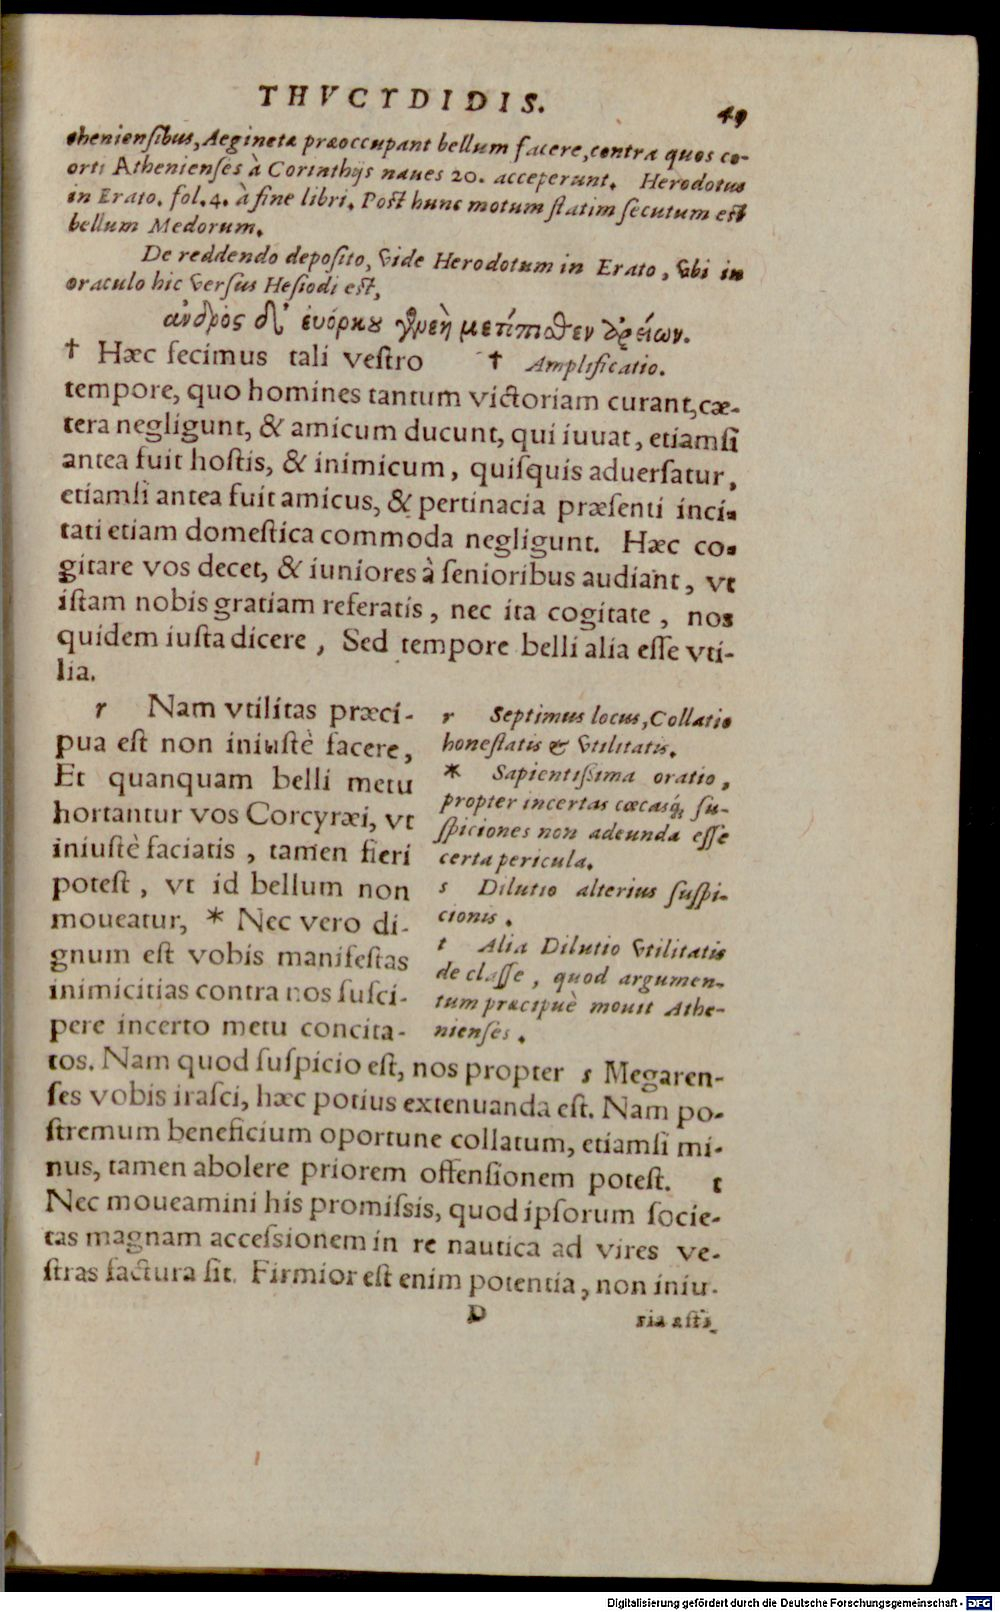 THVCYDIDIS. 49
theniensibus, Aeginetæ præoccupant bellum facere, contra quos co-
orti Athenienses à Corinthijs naues 20. acceperunt. Herodotus
in Erato. fol. 4. à fine libri. Post hunc motum statim secutum est
bellum Medorum.
De reddendo deposito, vide Herodotum in Erato, vbi in
oraculo hic versus Hesiodi est,
ἀνδρὸς δ' ἐυόρκου γενεὴ μετόπισθεν
† Hæc fecimus tali vestro
† Amplificatio.
tempore, quo homines tantum victoriam curant, cæ-
tera negligunt, & amicum ducunt, qui iuuat, etiamsi
antea fuit hostis, & inimicum, quisquis aduersatur,
etiamsi antea fuit amicus, & pertinacia præsenti inci-
tati etiam domestica commoda negligunt. Hæc co-
gitare vos decet, & iuniores à senioribus audiant, vt
istam nobis gratiam referatis, nec ita cogitate, nos
quidem iusta dicere, Sed tempore belli alia esse vti-
lia.
r Nam vtilitas præci-
pua est non iniustè facere,
Et quanquam belli metu
hortantur vos Corcyræi, vt
iniustè faciatis, tamen fieri
potest, vt id bellum non
moueatur, * Nec vero di-
gnum est vobis manifestas
inimicitias contra nos susci-
pere incerto metu concita-
r Septimus locus, Collatio
honestatis & vtilitatis.
* Sapientissima oratio,
propter incertas cæcasq; su-
spiciones non adeunda esse
certa pericula.
s Dilutio alterius suspi-
cionis.
t Alia Dilutio vtilitatis
de classe, quod argumen-
tum præcipuè mouit Athe-
nienses.
tos. Nam quod suspicio est, nos propter s Megaren-
ses vobis irasci, hæc potius extenuanda est. Nam po-
stremum beneficium oportune collatum, etiamsi mi-
nus, tamen abolere priorem offensionem potest. t
Nec moueamini his promissis, quod ipsorum socie-
tas magnam accessionem in re nautica ad vires ve-
stras factura sit. Firmior est enim potentia, non iniu-
D
Digitalisierung gefördert durch die Deutsche Forschungsgemeinschaft - DFG